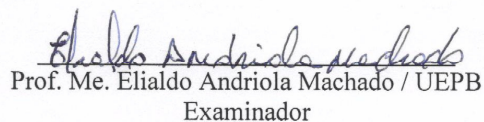 Elialdo Andriola Machado
Prof. Me. Elialdo Andriola Machado / UEPB
Examinador